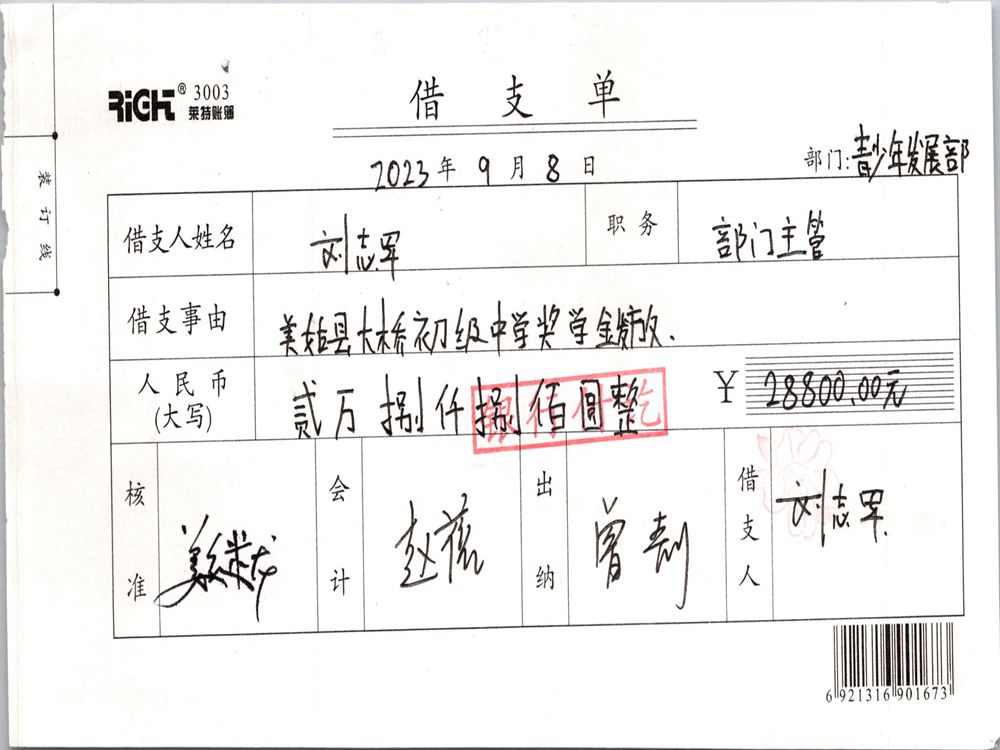 RiCH® 3003
莱特账簿
借支单
2023年9月8日
部门:青少年发展部
装订线
借支人姓名 刘志军 职务 部门主管
借支事由 美姑县大桥初级中学奖学金发放.
人民币(大写) 贰万捌仟捌佰圆整 ¥28800.00元
银行付讫
核准
会计 赵蓓
出纳 曾
借支人 刘志军
6 921316 901673